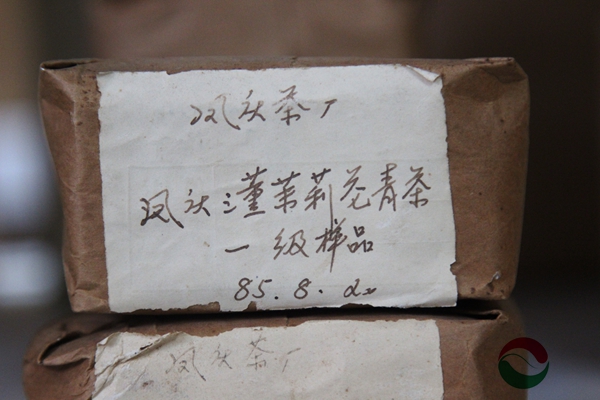 凤庆茶厂
凤庆三薰茉莉花青茶
一级样品
85.8.22
凤庆茶厂